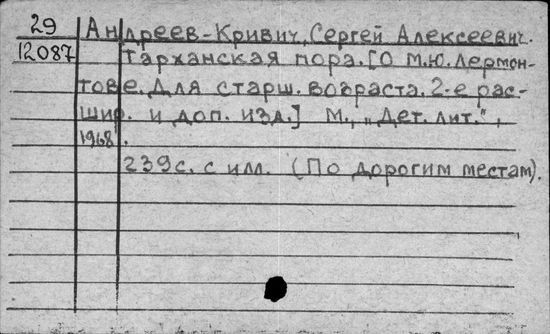 29 Андреев-Кривич, Сергей Алексеевич.
12087 Тарханская пора. [О М.Ю. Лермон-
тове. Для старш. возраста. 2-е рас-
шир. и доп. изд.] М., „Дет. лит.",
1968.
239с. с илл. (По дорогим местам).